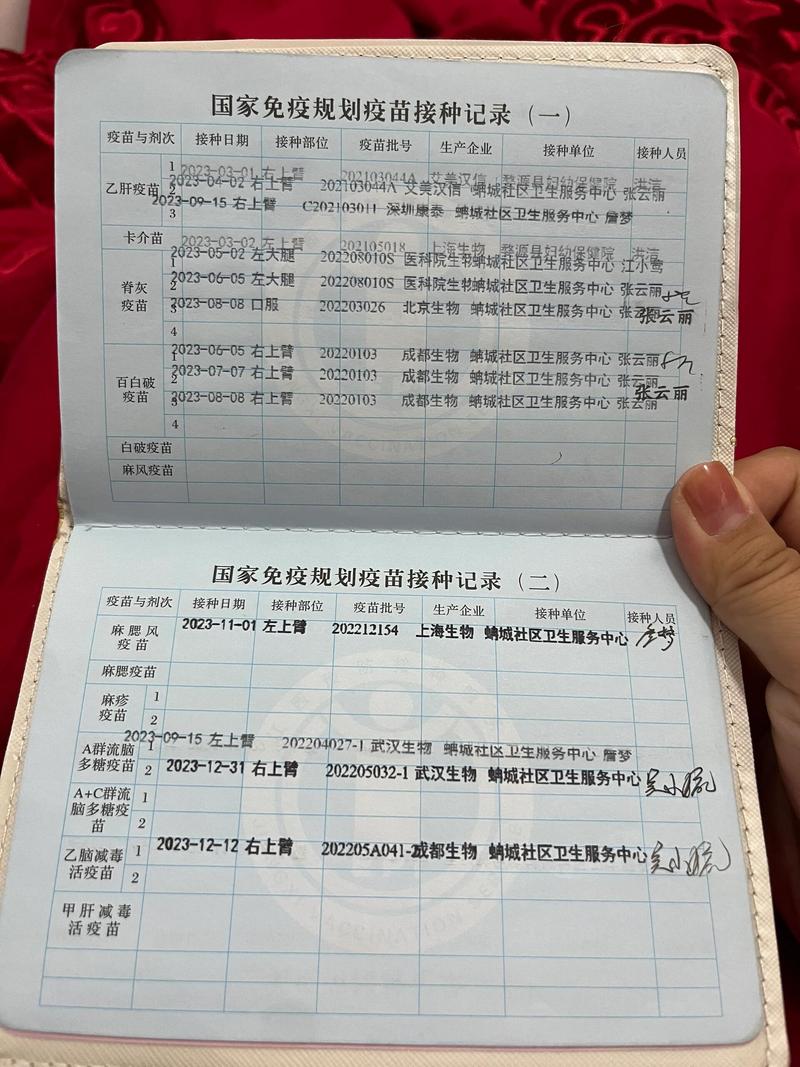 国家免疫规划疫苗接种记录（一）
疫苗与剂次 接种日期 接种部位 疫苗批号 生产企业 接种单位 接种人员
乙肝疫苗 1 2023-03-01 右上臂 202103044A 艾美汉信 婺源县妇幼保健院 洪洁
2 2023-04-02 右上臂 202103044A 艾美汉信 蚺城社区卫生服务中心 张云丽
3 2023-09-15 右上臂 C202103011 深圳康泰 蚺城社区卫生服务中心 詹梦
卡介苗 2023-03-02 左上臂 202105018 上海生物 婺源县妇幼保健院 洪洁
脊灰疫苗 1 2023-05-02 左大腿 202208010S 医科院生物 蚺城社区卫生服务中心 江小鸾
2 2023-06-05 左大腿 202208010S 医科院生物 蚺城社区卫生服务中心 张云丽
3 2023-08-08 口服 202203026 北京生物 蚺城社区卫生服务中心 张云丽 张云丽
4
百白破疫苗 1 2023-06-05 右上臂 20220103 成都生物 蚺城社区卫生服务中心 张云丽
2 2023-07-07 右上臂 20220103 成都生物 蚺城社区卫生服务中心 张云丽
3 2023-08-08 右上臂 20220103 成都生物 蚺城社区卫生服务中心 张云丽 张云丽
4
白破疫苗
麻风疫苗
国家免疫规划疫苗接种记录（二）
疫苗与剂次 接种日期 接种部位 疫苗批号 生产企业 接种单位 接种人员
麻腮风疫苗 2023-11-01 左上臂 202212154 上海生物 蚺城社区卫生服务中心 詹梦
麻腮疫苗
麻疹疫苗 1
2
A群流脑多糖疫苗 1 2023-09-15 左上臂 202204027-1 武汉生物 蚺城社区卫生服务中心 詹梦
2 2023-12-31 右上臂 202205032-1 武汉生物 蚺城社区卫生服务中心
A+C群流脑多糖疫苗 1
2
乙脑减毒活疫苗 1 2023-12-12 右上臂 202205A041-2 成都生物 蚺城社区卫生服务中心
2
甲肝减毒活疫苗